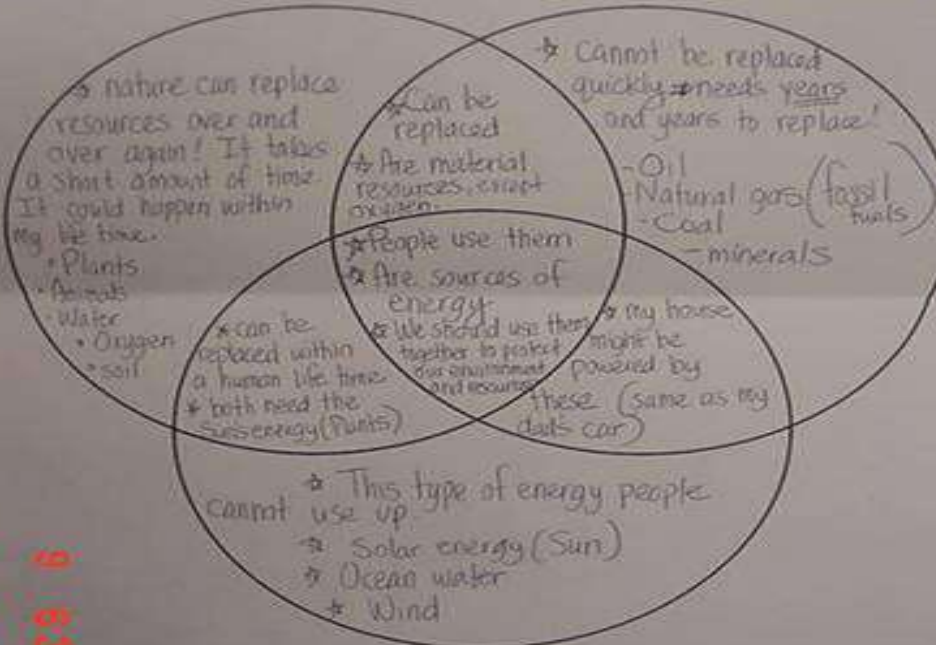 * nature can replace
resources over and
over again! It takes
a short amount of time
It could happen within
my life time.
• Plants
• Animals
• Water
• Oxygen
• soil
* Can be
replaced
* Are material
resources, except
oxygen.
* Cannot be replaced
quickly → needs years
and years to replace!
- Oil
- Natural gas (fossil
fuels)
- Coal
- minerals
* People use them
* Are sources of
energy.
* We should use them
together to protect
our environment
and resources
* can be
replaced within
a human life time
* both need the
sun's energy (Plants)
* my house
might be
powered by
these (same as my
dad's car)
* This type of energy people
cannot use up
* Solar energy (Sun)
* Ocean water
* Wind